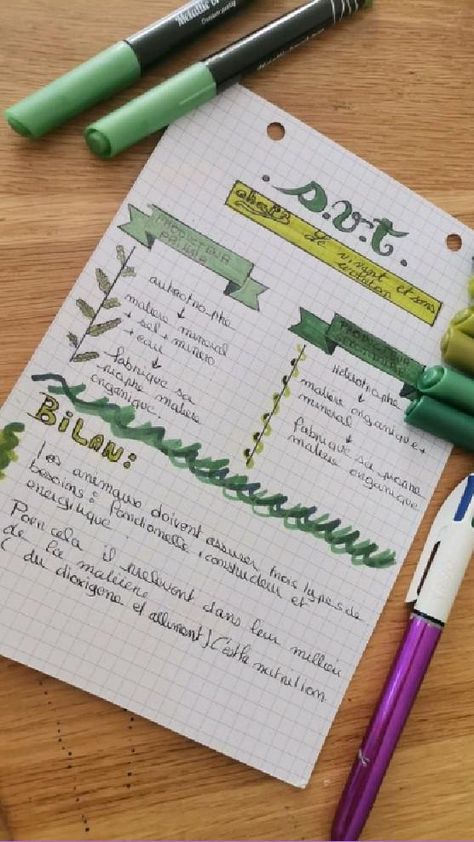 Metallic
. S.V.T.
chap 3 Le vivant et son
évolution
PRODUCTEUR
autotrophe
↓
matière minéral
+ sel + minéro
+ eau
↓
fabrique sa
matière
organique.
Hétérotrophe
↓
matière organique +
minéral
↓
fabrique sa propre
matière organique
BILAN:
Les animaux doivent assurer trois types de
besoins : fonctionnelle, constructeur et
énergitique.
Pour cela il prelevent dans leur millieu
de la matière
( du dioxigène et aliment) C'est la nutrition